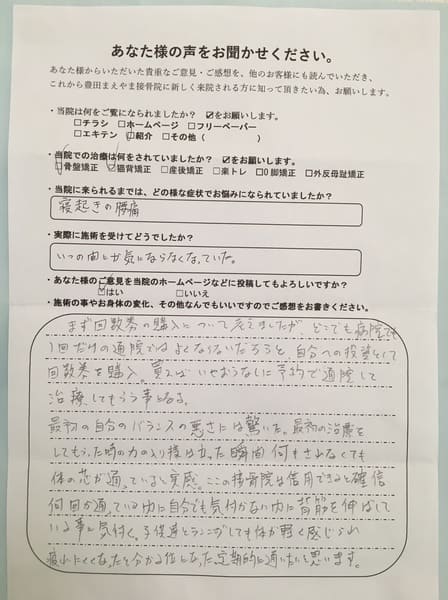 あなた様の声をお聞かせください。
あなた様からいただいた貴重なご意見・ご感想を、他のお客様にも読んでいただき、
これから豊田まえやま接骨院に新しく来院される方に知って頂きたい為、お願いします。
・当院は何をご覧になられましたか? ☑をお願いします。
□チラシ □ホームページ □フリーペーパー
□エキテン ☑紹介 □その他( )
・当院での治療は何をされていましたか? ☑をお願いします。
☑骨盤矯正 ☑猫背矯正 □産後矯正 □楽トレ □O脚矯正 □外反母趾矯正
・当院に来られるまでは、どの様な症状でお悩みになられていましたか?
寝起きの腰痛
・実際に施術を受けてどうでしたか?
いつの間にか気にならなくなっていた。
・あなた様のご意見を当院のホームページなどに投稿してもよろしいですか?
☑はい □いいえ
・施術の事やお身体の変化、その他なんでもいいですのでご感想をお書きください。
まず回数券の購入について考えましたが、どこでも病院でも
1回だけの通院ではよくならないだろうと、自分への投資として
回数券を購入。買えばいやおうなしに予約で通院して
治療してもらう事となる。
最初の自分のバランスの悪さには驚いた。最初の治療を
してもらった時の力の入り様は力った瞬間何もされなくても
体の芯が通っていると実感。ここの接骨院は信用できると確信
何回か通っている内に自分でも気付かない内に背筋を伸ばして
いる事に気付く。子供達とランニングしても体が軽く感じられ
疲れにくくなったと分かる位となった。定期的に通いたいと思います。